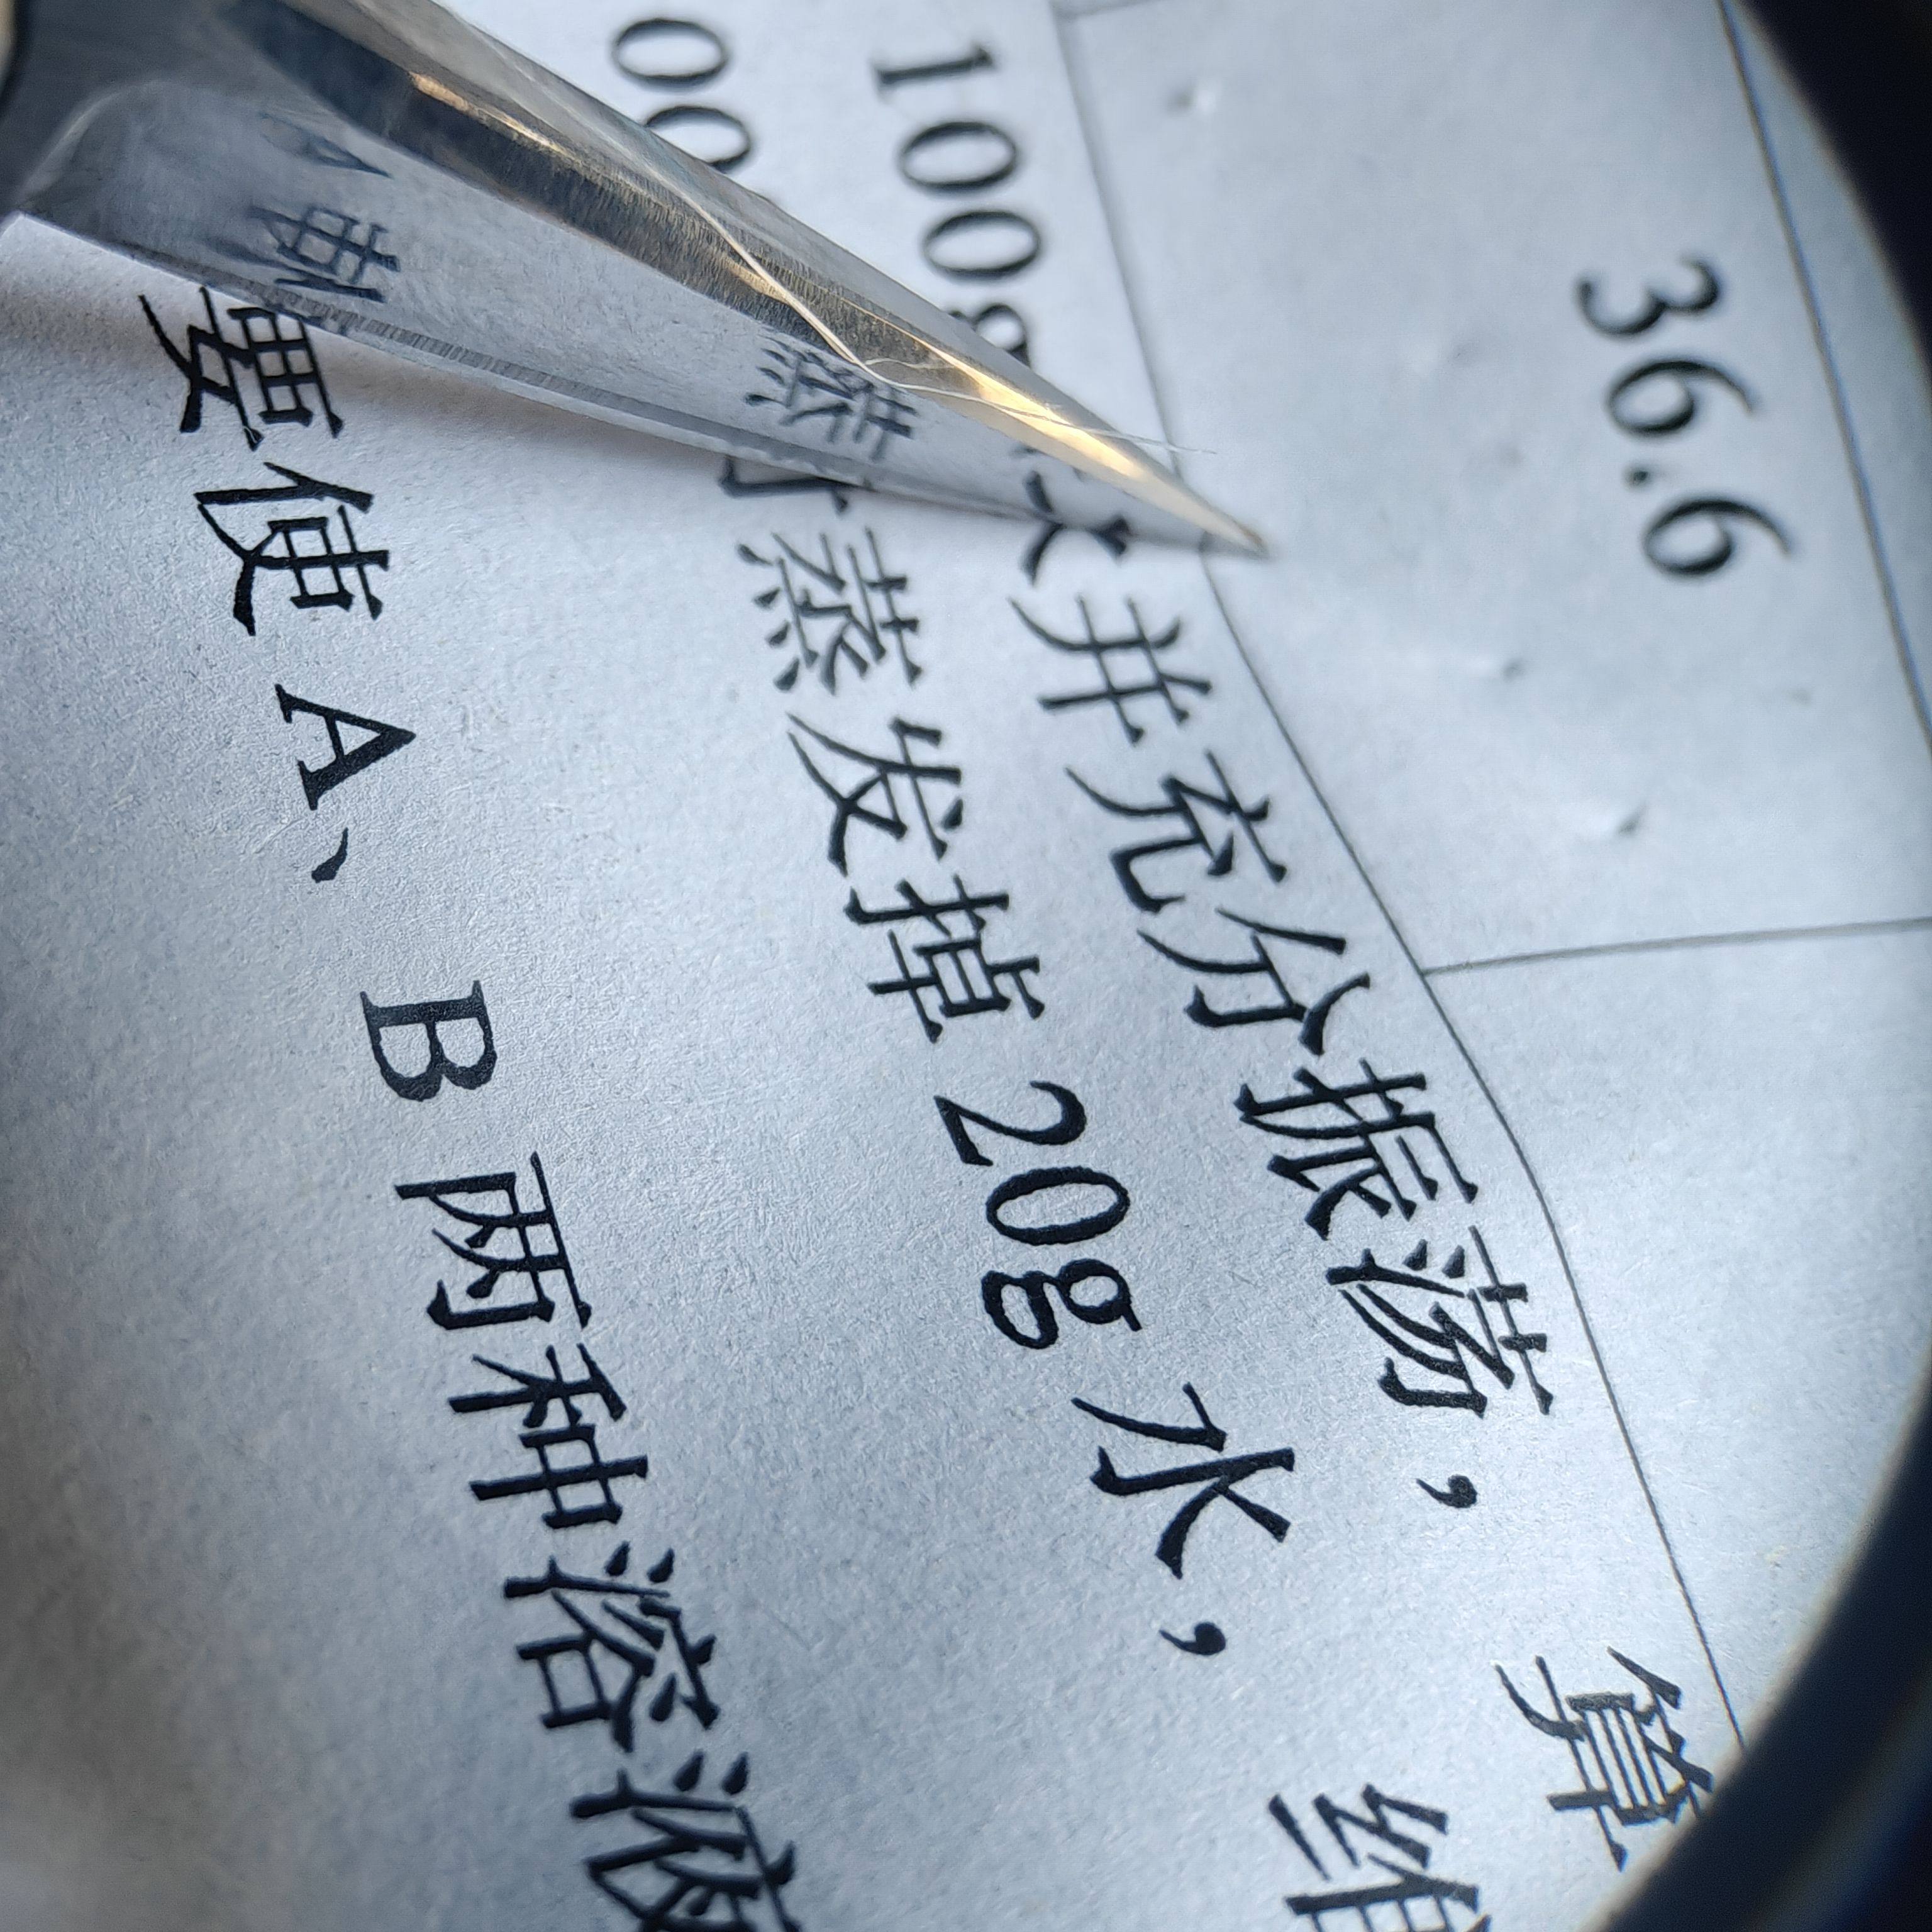 36.6
100g 水并充分振荡，算
00 蒸发掉 20g 水，维
要使 A、B 两种溶液